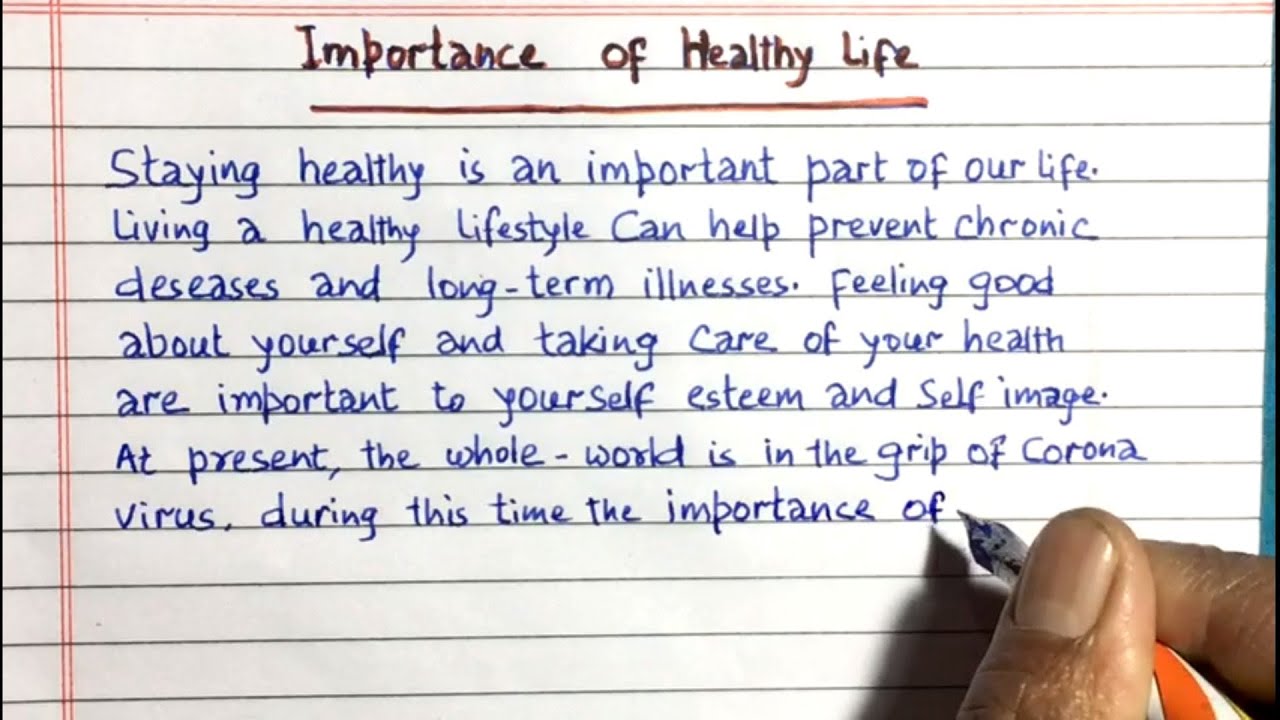 Importance of Healthy Life
Staying healthy is an important part of our life.
Living a healthy lifestyle Can help prevent chronic
deseases and long-term illnesses. Feeling good
about yourself and taking Care of your health
are important to yourself esteem and Self image.
At present, the whole-world is in the grip of Corona
virus. during this time the importance of